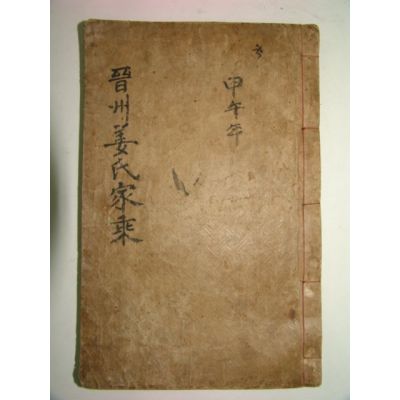 晉州姜氏家乘
甲午年